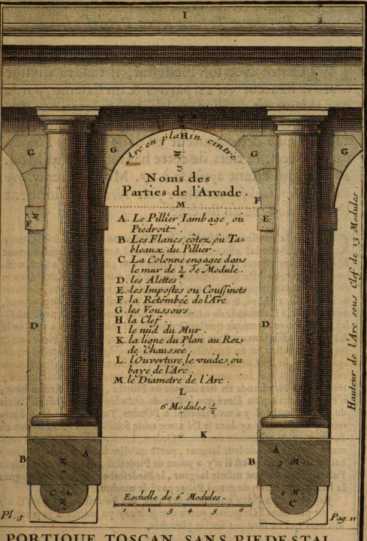 I
Arc en plain cintre
H
G G G G
M
Noms des
Parties de l'Arcade.
M
F
E E
A. Le Pillier Iambage, ou
Piedroit
B. Les Flancs, côtez, ou Ta-
bleaux du Pillier.
C. La Colonne engagée dans
le mur de de Module.
D. les Alettes.
E. les Impostes ou Coussinets
F. la Retombée de l'Arc
G. les Voussoirs.
H. la Clef.
I. le nüd du Mur.
K. la ligne du Plan au Rez
de chaussée
L. l'Ouverture, le vuide, ou
baye de l'Arc.
M. le Diametre de l'Arc.
D D D
L
6 Modules
K
Hauteur de l'Arc sous Clef de 13 Modules
B A B A
C C
Eschelle de 6 Modules.
1 2 3 4 5 6
Pl. 5 Pag. 11
PORTIQUE TOSCAN SANS PIEDESTAL